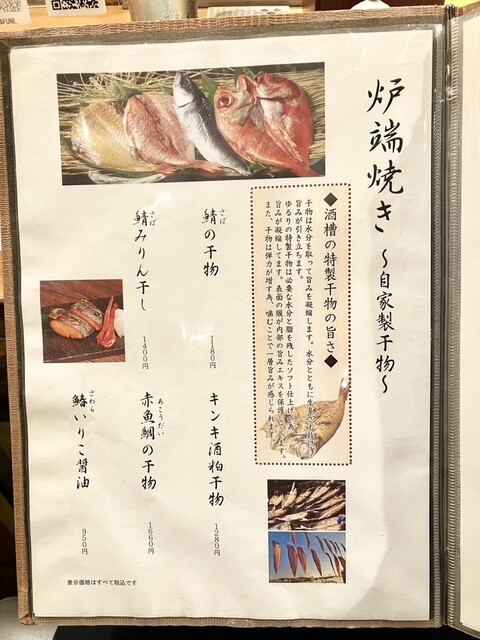 炉端焼き
〜自家製干物〜
◆酒槽の特製干物の旨さ◆
干物は水分を取って旨みを凝縮します。水分とともに生
旨みが引き立ちます。
ゆるりの特製干物は必要な水分と脂を残したソフト仕上げ
旨みが凝縮してます。表面の膜が内部の旨みエキスを保護
また、干物は弾力が増す為、噛むことで一層旨みが感じられます。
さば
鯖の干物
1180円
さば
鯖みりん干し
1400円
キンキ酒粕干物
1280円
あこうだい
赤魚鯛の干物
1660円
さわら
鰆いりこ醤油
950円
表示価格はすべて税込です